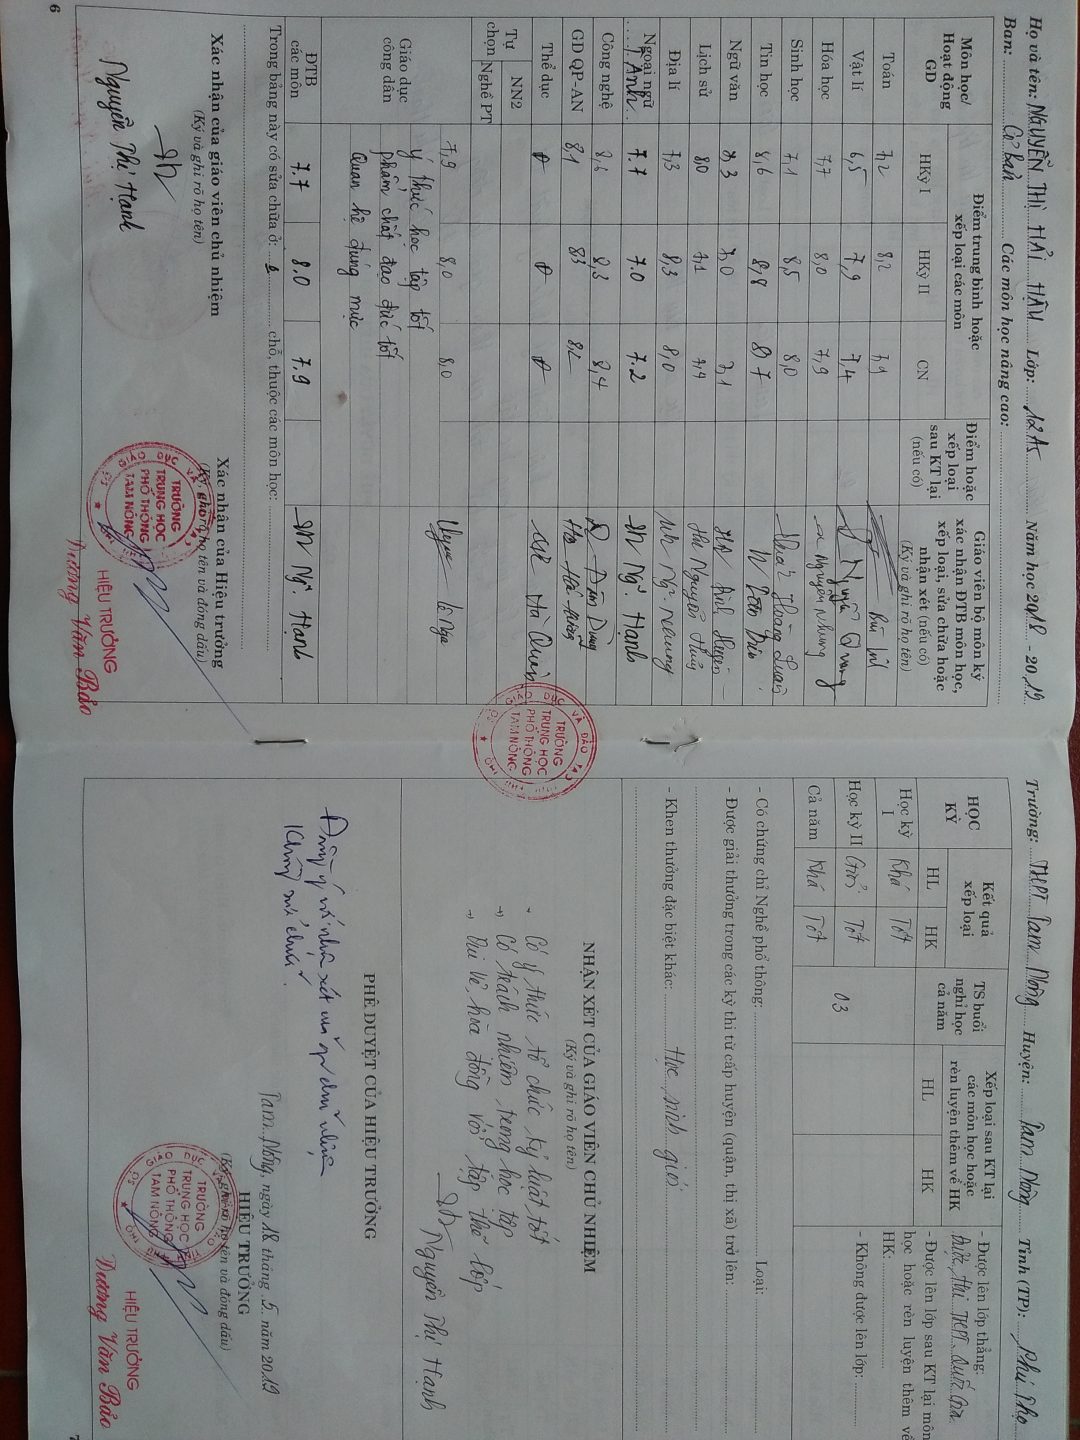 Họ và tên: NGUYỄN THỊ HẢI HẬU Lớp: 12A5 Năm học 2018 - 2019
Ban: Cơ bản Các môn học nâng cao:
Môn học/ Hoạt động GD
Điểm trung bình hoặc xếp loại các môn
Điểm hoặc xếp loại sau KT lại (nếu có)
Giáo viên bộ môn ký xác nhận ĐTB môn học, xếp loại, sửa chữa hoặc nhận xét (nếu có)
(Ký và ghi rõ họ tên)
HKỳ I HKỳ II CN
Toán 7,2 8,2 7,9
Vật lí 6,5 7,9 7,4 Nguyễn Quang
Hóa học 7,7 8,0 7,9 Nguyễn Nhung
Sinh học 7,1 8,5 8,0 Hoàng Luận
Tin học 8,6 8,8 8,7
Ngữ văn 7,3 7,0 7,1 Đinh Huyền
Lịch sử 8,0 7,1 7,4 Nguyễn Thủy
Địa lí 7,3 8,3 8,0 Ng. Nhung
Ngoại ngữ T.Anh 7.7 7.0 7.2 Ng. Hạnh
Công nghệ 8,6 8,3 8,4 Trần Dũng
GDQP-AN 8,1 8,3 8,2
Thể dục Đ Đ Đ Hà Quên
Tự chọn NN2
Nghề PT
Giáo dục công dân 7,9 8,0 8,0 Lê Nga
ý thức học tập tốt
phẩm chất đạo đức tốt
Quan hệ đúng mực
ĐTB các môn 7.7 8.0 7.9 Ng. Hạnh
Trong bảng này có sửa chữa ở: chỗ, thuộc các môn học:
Xác nhận của giáo viên chủ nhiệm
(Ký và ghi rõ họ tên)
Nguyễn Thị Hạnh
Xác nhận của Hiệu trưởng
(Ký, ghi rõ họ tên và đóng dấu)
SỞ GIÁO DỤC VÀ ĐÀO TẠO
TRƯỜNG
TRUNG HỌC
PHỔ THÔNG
TAM NÔNG
HIỆU TRƯỞNG
Dương Văn Bảo
6
SỞ GIÁO DỤC VÀ ĐÀO TẠO
TRƯỜNG
TRUNG HỌC
PHỔ THÔNG
TAM NÔNG
Trường: THPT Tam Nông Huyện: Tam Nông Tỉnh (TP): Phú Thọ
HỌC KỲ
Kết quả xếp loại
TS buổi nghỉ học cả năm
Xếp loại sau KT lại các môn học hoặc rèn luyện thêm về HK
HL HK HL HK
Học kỳ I Khá Tốt
Học kỳ II Giỏi Tốt
Cả năm Khá Tốt
03
- Được lên lớp thẳng:
Được thi THPT Quốc Gia
- Được lên lớp sau KT lại môn
học hoặc rèn luyện thêm về
HK:
- Không được lên lớp:
- Có chứng chỉ Nghề phổ thông: Loại:
- Được giải thưởng trong các kỳ thi từ cấp huyện (quận, thị xã) trở lên:
- Khen thưởng đặc biệt khác: Học sinh giỏi
NHẬN XÉT CỦA GIÁO VIÊN CHỦ NHIỆM
(Ký và ghi rõ họ tên)
- Có ý thức tổ chức kỷ luật tốt
→ Có trách nhiệm trong học tập
→ Vui vẻ, hòa đồng với tập thể lớp
Nguyễn Thị Hạnh
PHÊ DUYỆT CỦA HIỆU TRƯỞNG
Đồng ý với nhận xét của gv chủ nhiệm
Tam Nông, ngày 18 tháng 5 năm 2019
HIỆU TRƯỞNG
(Ký, ghi rõ họ tên và đóng dấu)
SỞ GIÁO DỤC VÀ ĐÀO TẠO
TRƯỜNG
TRUNG HỌC
PHỔ THÔNG
TAM NÔNG
HIỆU TRƯỞNG
Dương Văn Bảo
7